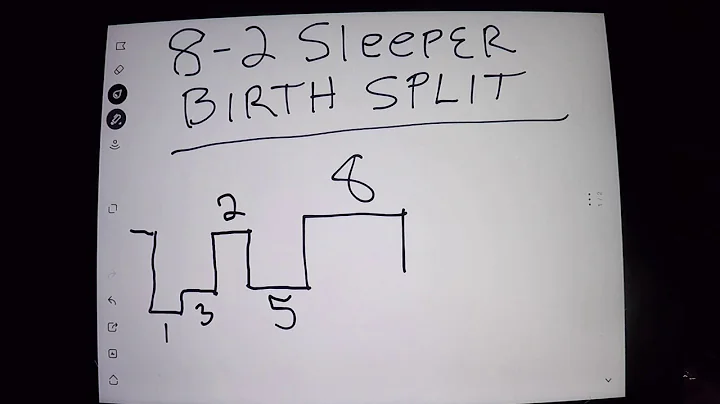 8-2 SleePER
BIRTH SPLIT
8
2
1 3 5
1/2